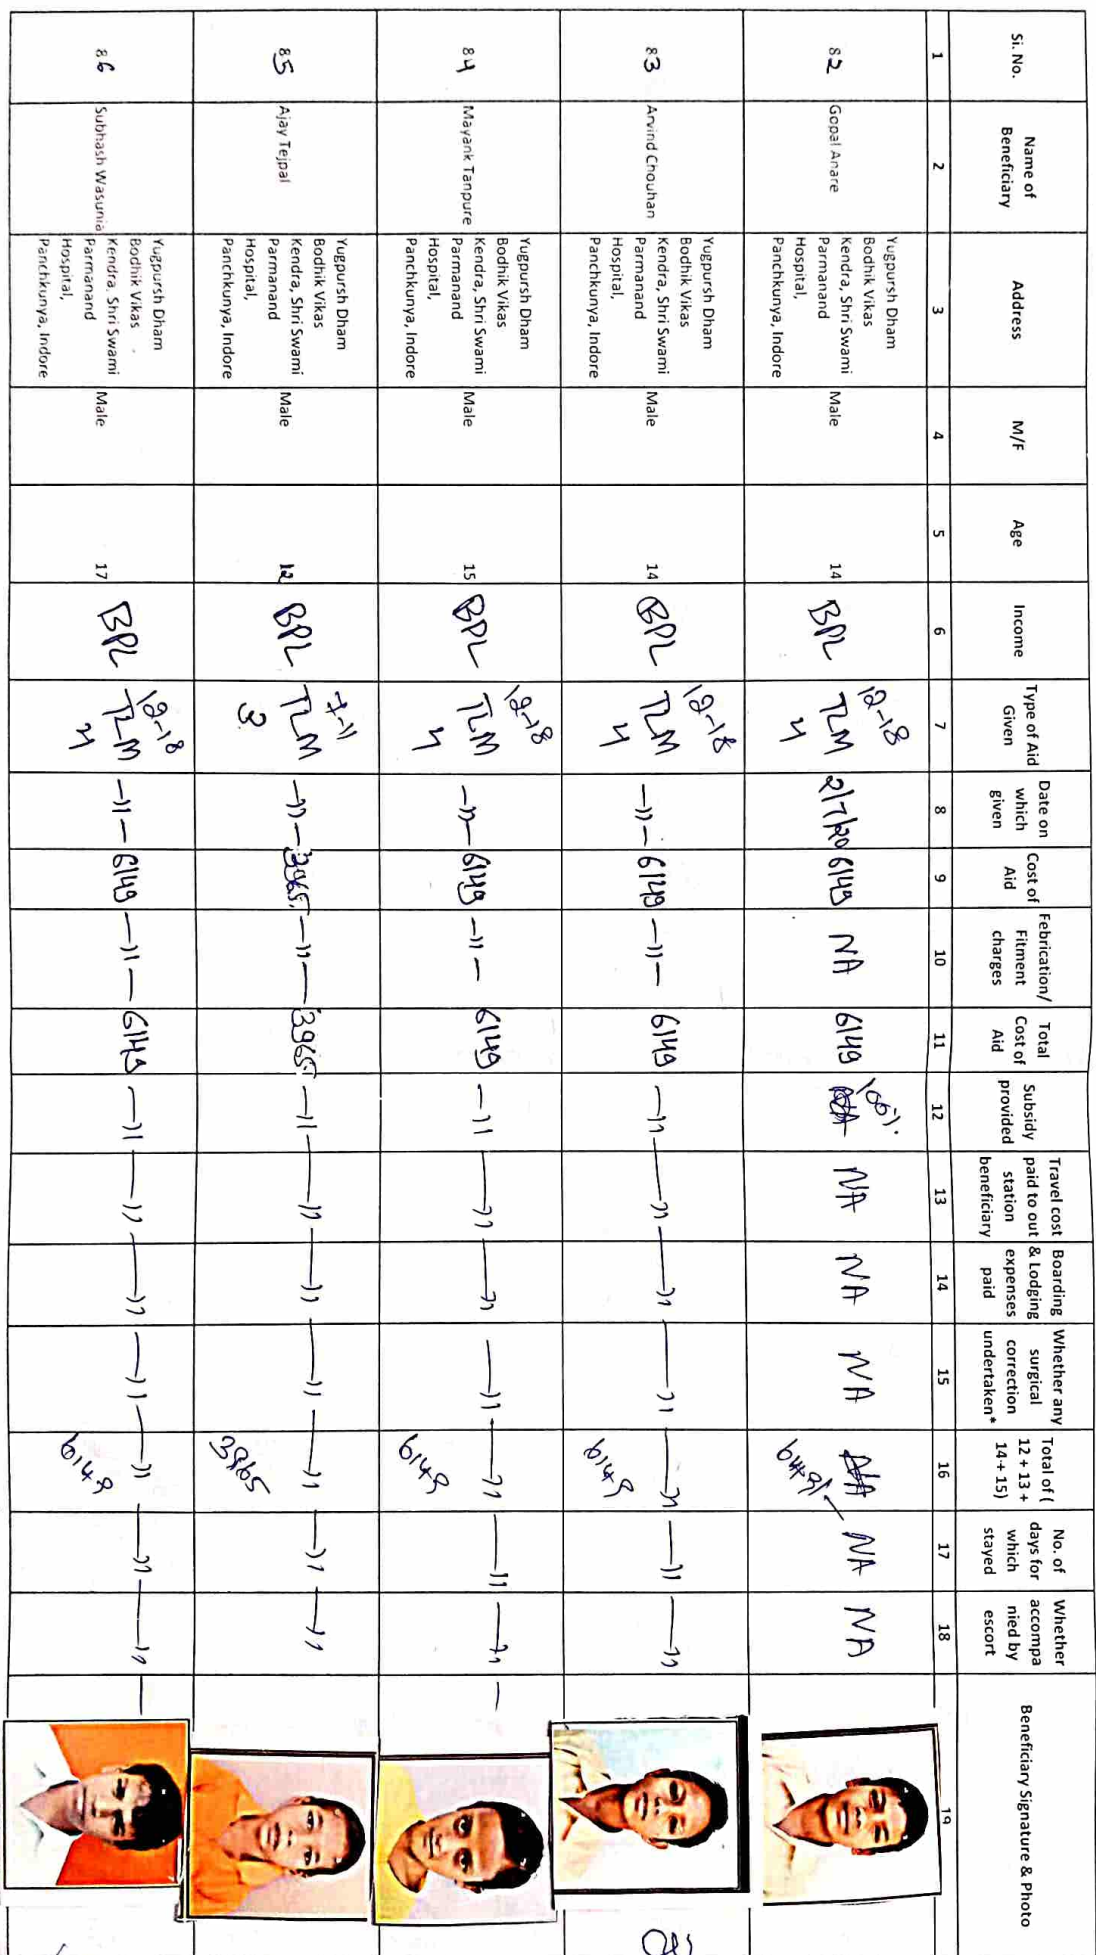 Si. No.
Name of
Beneficiary
Address
M/F
Age
Income
Type of Aid
Given
Date on
which
given
Cost of
Aid
Febrication/
Fitment
charges
Total
Cost of
Aid
Subsidy
provided
Travel cost
paid to out
station
beneficiary
Boarding
& Lodging
expenses
paid
Whether any
surgical
correction
undertaken*
Total of (
12 + 13 +
14 + 15)
No. of
days for
which
stayed
Whether
accompa
nied by
escort
Beneficiary Signature & Photo
1 2 3 4 5 6 7 8 9 10 11 12 13 14 15 16 17 18 19
82
Gopal Anare
Yugpursh Dham
Bodhik Vikas
Kendra, Shri Swami
Parmanand
Hospital,
Panchkunya, Indore
Male
14
BPL
12-18
TLM
4
2/7/20
6149
NA
6149
100%.
NA
NA
NA
NA
NA
83
Arvind Chouhan
Yugpursh Dham
Bodhik Vikas
Kendra, Shri Swami
Parmanand
Hospital,
Panchkunya, Indore
Male
14
BPL
12-18
TLM
4
—11—
6149
—11—
6149
—11—11—11—11—11
6149
—11—11
84
Mayank Tanpure
Yugpursh Dham
Bodhik Vikas
Kendra, Shri Swami
Parmanand
Hospital,
Panchkunya, Indore
Male
15
BPL
12-18
TLM
4
—11—
6149
—11—
6149
—11—11—11—11—11
6149
—11—11—
85
Ajay Tejpal
Yugpursh Dham
Bodhik Vikas
Kendra, Shri Swami
Parmanand
Hospital,
Panchkunya, Indore
Male
12
BPL
7-11
TLM
3
—11—
3965
—11—
3965
—11—11—11—11—11
3965
—11—11
86
Subhash Wasunia
Yugpursh Dham
Bodhik Vikas
Kendra, Shri Swami
Parmanand
Hospital,
Panchkunya, Indore
Male
17
BPL
12-18
TLM
4
—11—
6149
—11—
6149
—11—11—11—11—11
6149
—11—11—